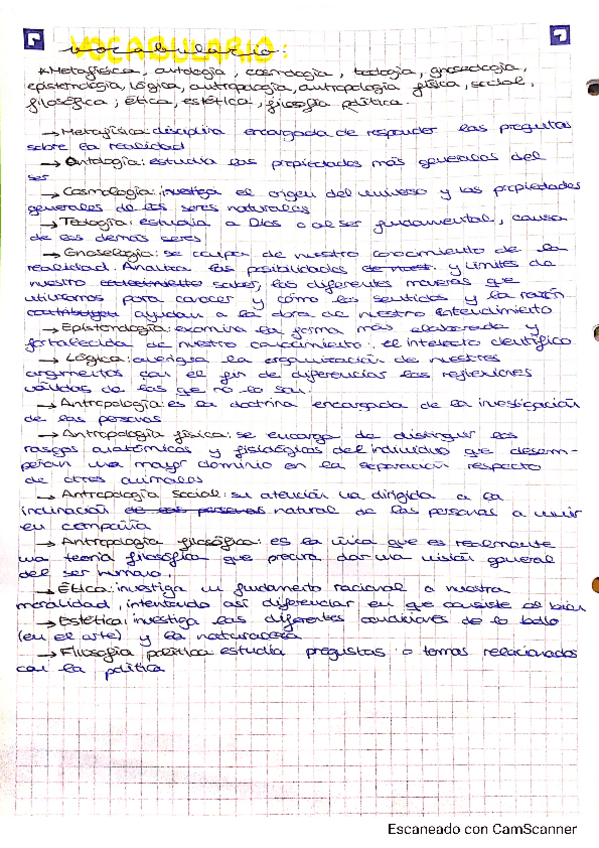 VOCABULARIO
vocabulario:
*Metafísica, ontología, cosmología, teología, gnoseología,
epistemología, lógica, antropología, antropología física, social,
filosófica, ética, estética, filosofía política.
→ Metafísica: disciplina encargada de responder las preguntas
sobre la realidad
→ Ontología: estudia las propiedades más generales del
ser
→ Cosmología: investiga el origen del universo y las propiedades
generales de los seres naturales
→ Teología: estudia a Dios o al ser fundamental, causa
de los demás seres
→ Gnoseología: se ocupa de nuestro conocimiento de la
realidad. Analiza las posibilidades y límites de
nuestro saber, las diferentes maneras que
utilizamos para conocer y cómo los sentidos y la razón
ayudan a la obra de nuestro entendimiento
→ Epistemología: examina la forma más elaborada y
fortalecida de nuestro conocimiento: el intelecto científico
→ Lógica: averigua la organización de nuestros
argumentos con el fin de diferenciar las reflexiones
válidas de las que no lo son
→ Antropología: es la doctrina encargada de la investigación
de las personas
→ Antropología física: se encarga de distinguir los
rasgos anatómicos y fisiológicos del individuo que desem-
peñan un mayor dominio en la separación respecto
de otros animales
→ Antropología social: su atención va dirigida a la
inclinación de las personas natural de las personas a vivir
en compañía
→ Antropología filosófica: es la única que es realmente
una teoría filosófica que precisa dar una visión general
del ser humano.
→ Ética: investiga un fundamento racional a nuestra
moralidad, intentando así diferenciar en que consiste el bien
→ Estética: investiga las diferentes condiciones de lo bello
(en el arte) y la naturaleza
→ Filosofía política estudia preguntas o temas relacionados
con la política
Escaneado con CamScanner